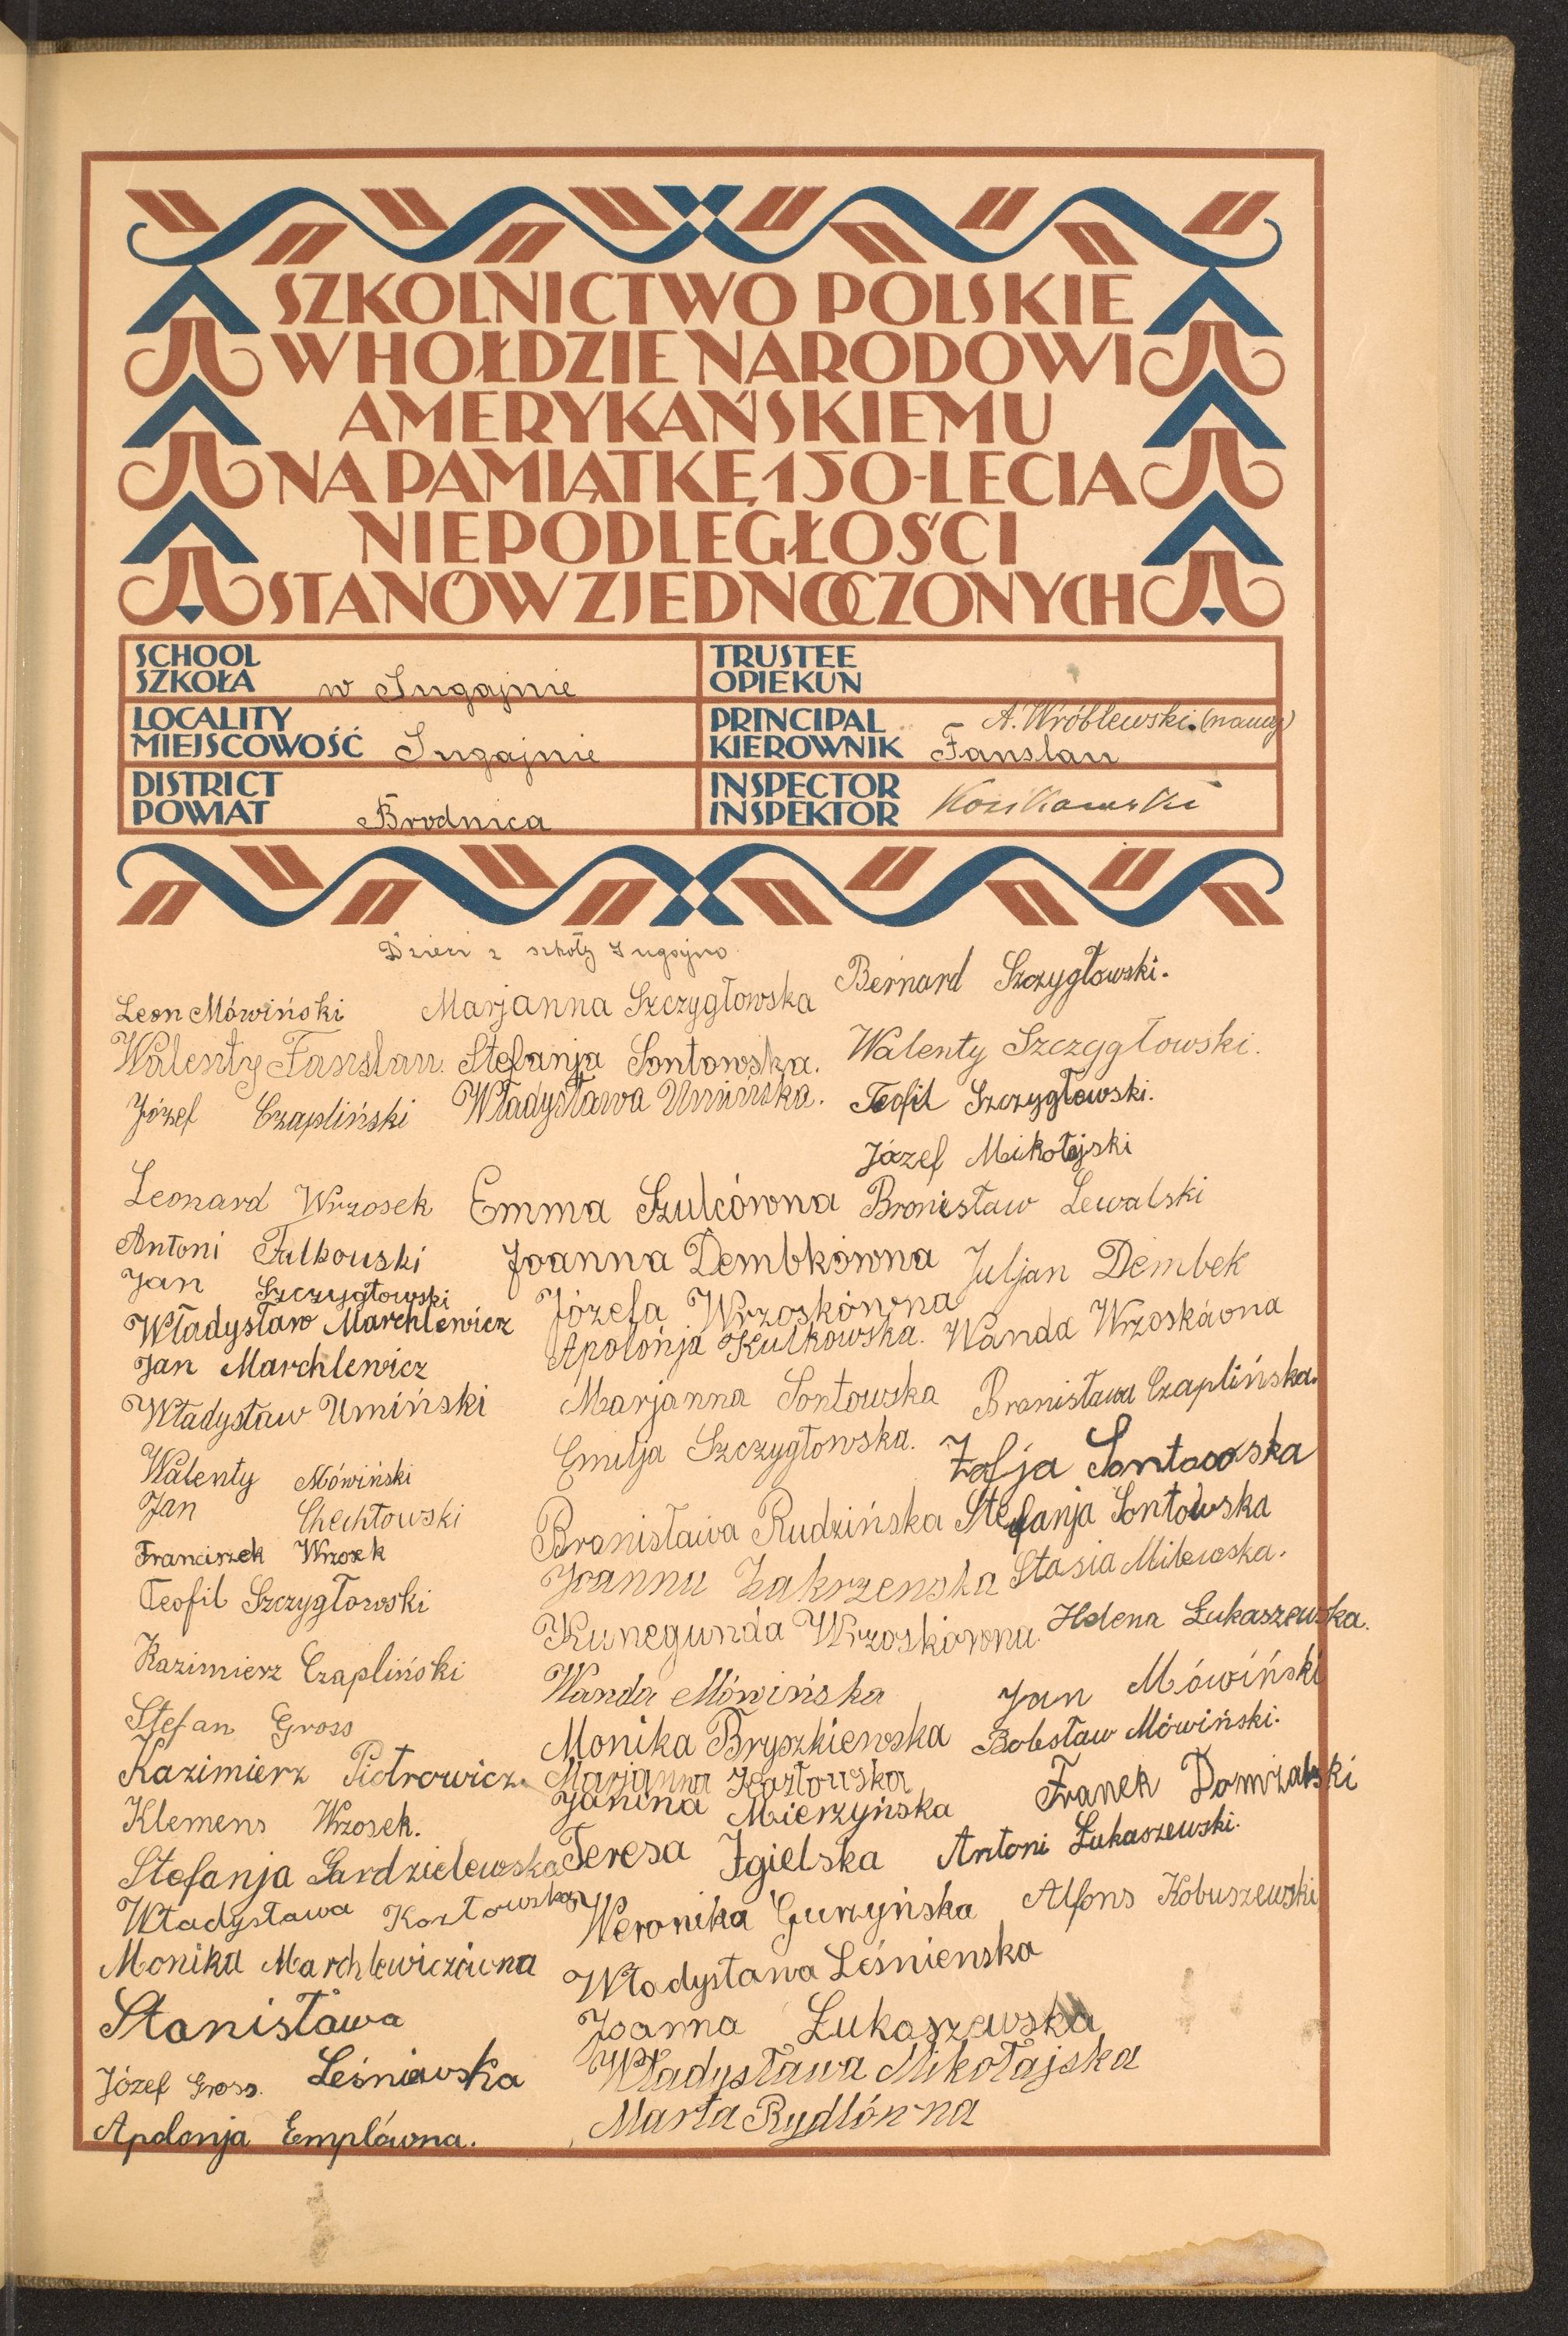 SZKOLNICTWO POLSKIE
W HOŁDZIE NARODOWI
AMERYKAŃSKIEMU
NA PAMIĄTKĘ 150-LECIA
NIEPODLEGŁOŚCI
STANÓW ZJEDNOCZONYCH
SCHOOL
SZKOŁA w Jugajnie
TRUSTEE
OPIEKUN
LOCALITY
MIEJSCOWOŚĆ Jugajnie
PRINCIPAL A. Wróblewski (naucz)
KIEROWNIK Fanslau
DISTRICT
POWIAT Brodnica
INSPECTOR
INSPEKTOR
Dzieci z szkoły Jugajno
Leon Mówiński
Walenty Fanslau
Józef Czapliński
Leonard Wrzosek
Antoni Falkowski
Jan Szczygłowski
Władysław Marchlewicz
Jan Marchlewicz
Władysław Umiński
Walenty Mówiński
Jan Chechłowski
Franciszek Wrzosek
Teofil Szczygłowski
Kazimierz Czapliński
Stefan Gross
Kazimierz Piotrowicz.
Klemens Wrzosek.
Stefanja Gardzielewska
Władysława Kozłowska
Monika Marchlewiczówna
Stanisława
Leśniewska
Józef Gross.
Apolonja Emplówna.
Marjanna Szczygłowska
Stefanja Sontowska.
Władysława Umińska.
Emma Szulcówna
Joanna Dembkówna
Józefa Wrzoskówna
Apolonja Kulkowska.
Marjanna Sontowska
Emilja Szczygłowska.
Bronisława Rudzińska
Joanna Zakrzenska
Kunegunda Wrzoskówna
Wanda Mówińska
Monika Bryszkiewska
Marjanna Kozłowska
Janina Mierzyńska
Teresa Zgielska
Weronika Gurzyńska
Władysława Leśnienska
Joanna Łukaszewska
Władysława Mikołajska
Marta Rydlówna
Bernard Szczygłowski.
Walenty Szczygłowski.
Teofil Szczygłowski.
Józef Mikołajski
Bronisław Lewalski
Juljan Dembek
Wanda Wrzoskówna
Bronisława Czaplińska.
Zofja Sontowska
Stefanja Sontowska
Stasia Milewska.
Helena Łukaszewska.
Jan Mówiński
Bolesław Mówiński.
Franek Domżalski
Antoni Łukaszewski.
Alfons Kobuszewski